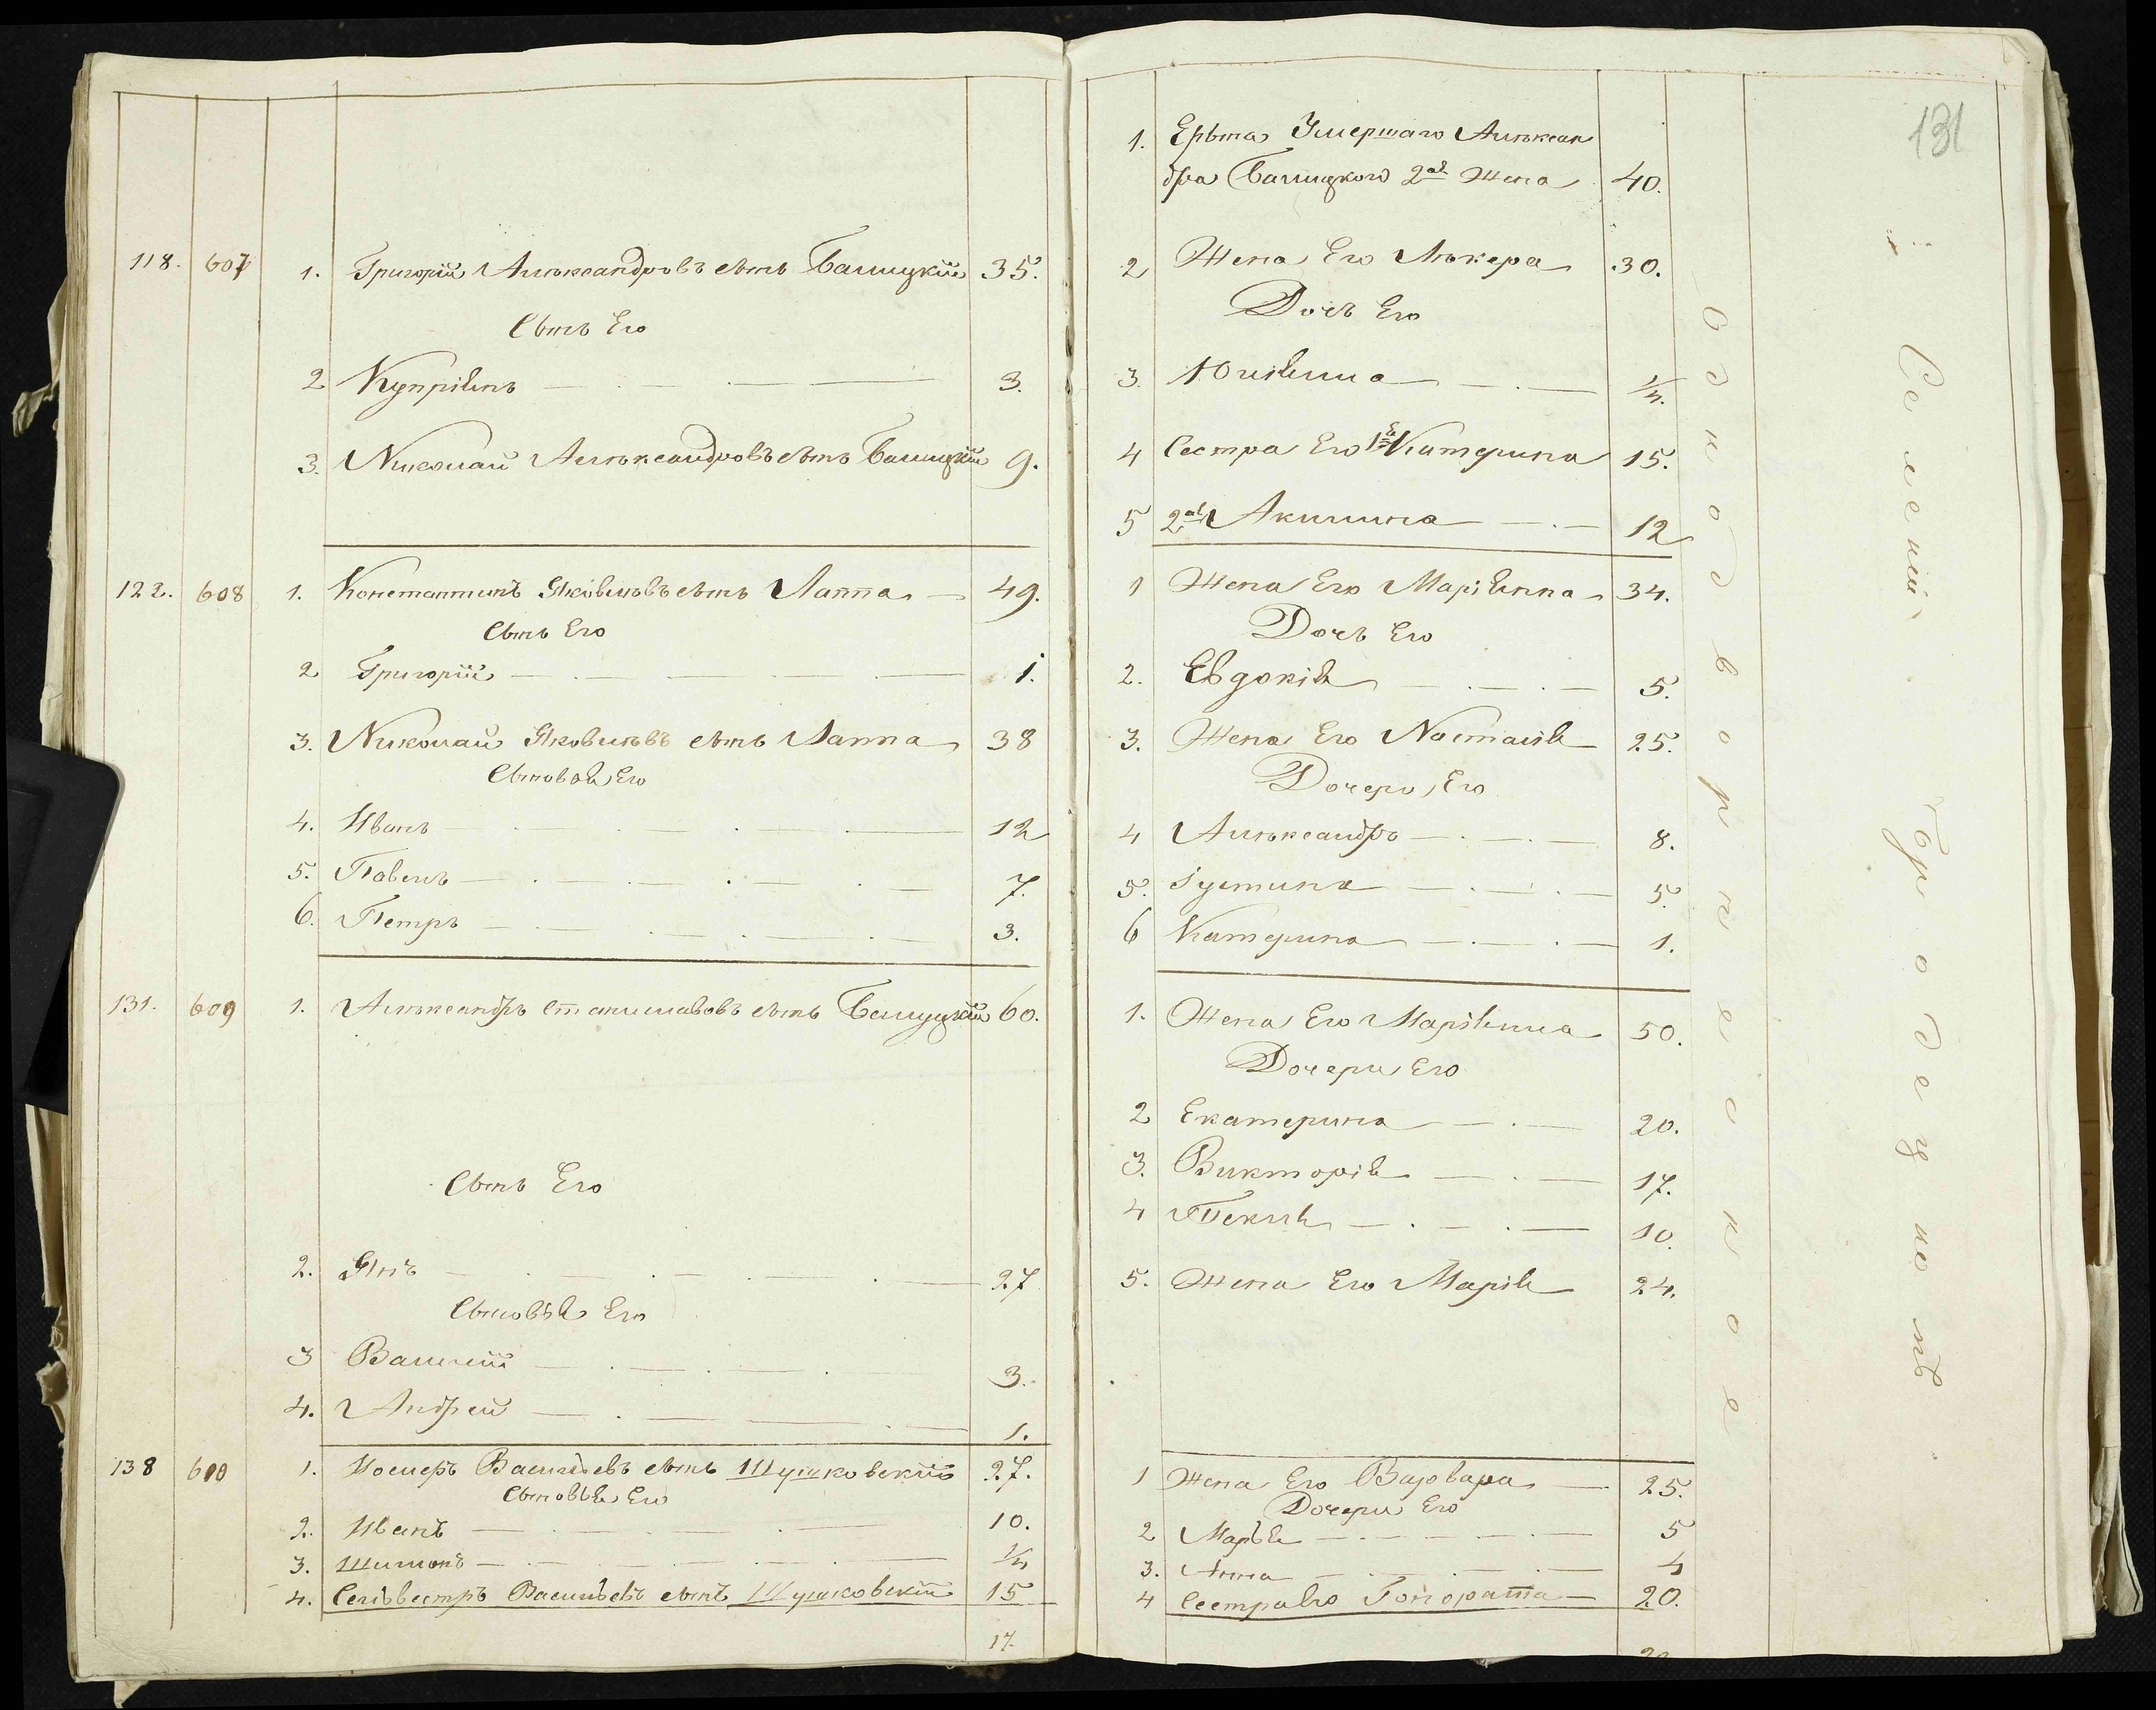 118. 607 1. Григорій Александровъ сынъ Балицкій 35.
Сынъ Его
2 Купріянъ 3.
3. Николай Александровъ сынъ Балицкій 9.
122. 608 1. Константинъ Яковлевъ сынъ Лаппа 49.
Сынъ Его
2 Григорій 1.
3. Николай Яковлевъ сынъ Лаппа 38
Сыновья Его
4. Иванъ 12
5. Павелъ 7.
6. Петръ 3.
131. 609 1. Александръ Станиславовъ сынъ Балицкій 60.
Сынъ Его
2. Янъ 27
Сыновья Его
3 Василій 3.
4. Андрей 1.
138 610 1. Іосифъ Васильевъ сынъ Шушковскій 27.
Сыновья Его
2. Иванъ 10.
3. Шимонъ 1/4
4. Сельвестръ Васильевъ сынъ Шушковскій 15
17.
131
1. Умершаго Алексан
дра Балицкого 2ая Жена 40.
2 Жена Его Лукера 30.
Дочь Его
3. Юліянна 1/4.
4 Сестра Его 1я Катерина 15.
5 2ая Акилина 12
1 Жена Его Маріянна 34.
Дочь Его
2. Евдокія 5.
3. Жена Его Настасія 25.
Дочери Его
4 Александра 8.
5. Іустина 5.
6 Катерина 1.
1. Жена Его Маріянна 50.
Дочери Его
2 Екатерина 20.
3. Викторія 17.
4 Текля 10.
5. Жена Его Марія 24.
1 Жена Его Варвара 25.
Дочери Его
2 Марья 5
3. Анна 4
4 Сестра Его Гонората 20.
Однодворческое
Селеній Бродецкой